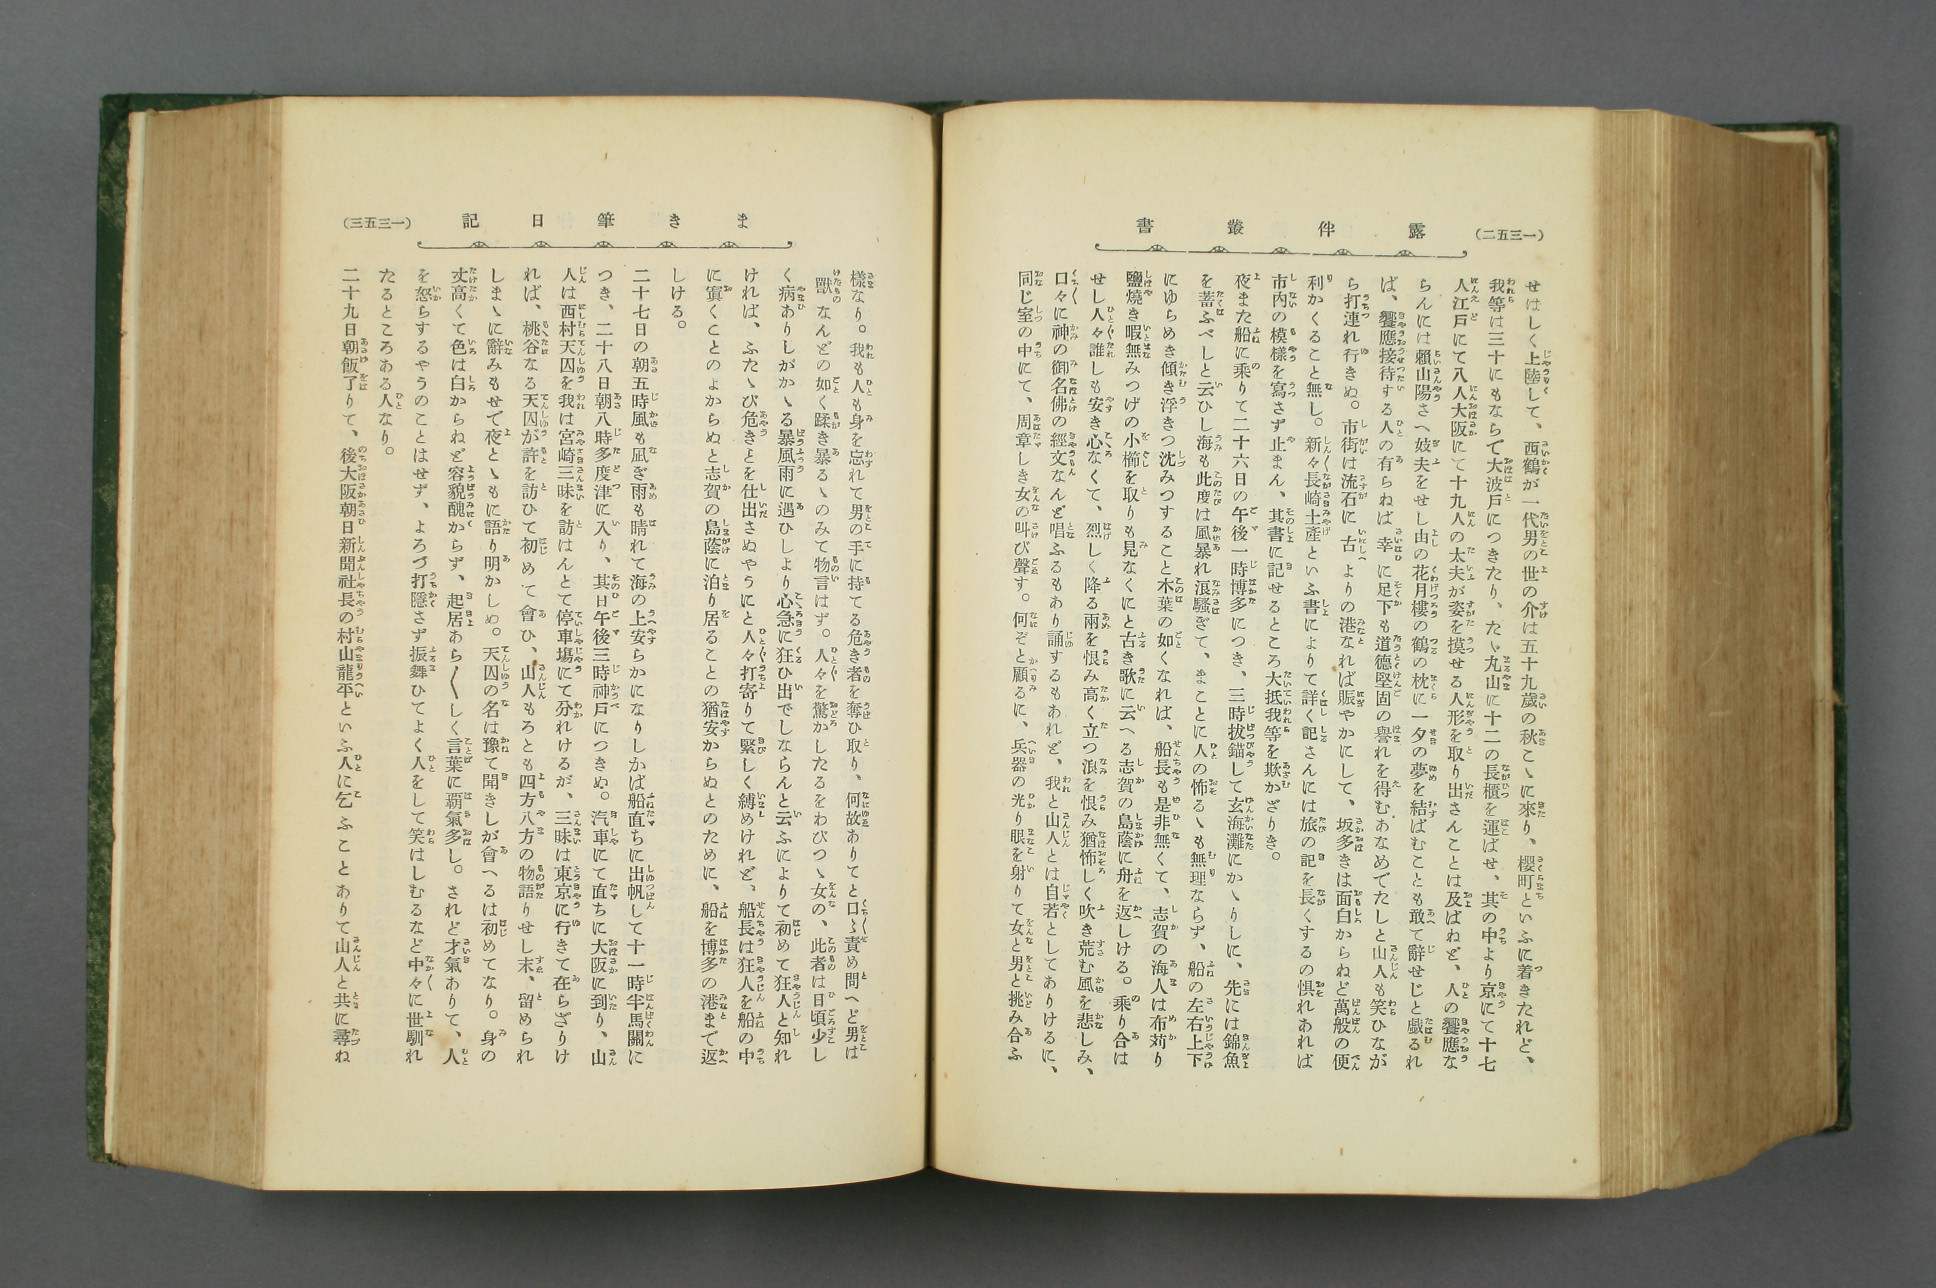 (一三五二)
露伴叢書
せはしく上陸して、西鶴が一代男の世の介は五十九歳の秋こゝに來り、櫻町といふに着きたれど、
我等は三十にもならで大波戸につきたり、たゞ丸山に十二の長櫃を運ばせ、其の中より京にて十七
人江戸にて八人大阪にて十九人の太夫が姿を摸せる人形を取り出さんことは及ばねど、人の饗應な
らんには頼山陽さへ妓夫をせし由の花月樓の鶴の枕に一夕の夢を結ばむことも敢て辭せじと戯るれ
ば、饗應接待する人の有らねば幸に足下も道德堅固の譽れを得むあなめでたしと山人も笑ひなが
ら打連れ行きぬ。市街は流石に古よりの港なれば賑やかにして、坂多きは面白からねど萬般の便
利かくること無し。新々長崎土產といふ書によりて詳く記さんには旅の記を長くするの惧れあれば
市内の模樣を寫さず止まん、其書に記せるところ大抵我等を欺かざりき。
夜また船に乘りて二十六日の午後一時博多につき、三時拔錨して玄海灘にかゝりしに、先には錦魚
を蓄ふべしと云ひし海も此度は風暴れ浪騷ぎて、まことに人の怖るゝも無理ならず、船の左右上下
にゆらめき傾き浮きつ沈みつすること木葉の如くなれば、船長も是非無くて、志賀の海人は布苅り
鹽燒き暇無みつげの小櫛を取りも見なくにと古き歌に云へる志賀の島蔭に舟を返しける。乘り合は
せし人々誰しも安き心なくて、烈しく降る雨を恨み高く立つ浪を恨み猶怖しく吹き荒む風を悲しみ、
口々に神の御名佛の經文なんど唱ふるもあり誦するもあれど、我と山人とは自若としてありけるに、
同じ室の中にて、周章しき女の叫び聲す。何ぞと顧るに、兵器の光り眼を射りて女と男と挑み合ふ
まき筆日記
(一三五三)
樣なり。我も人も身を忘れて男の手に持てる危き者を奪ひ取り、何故ありてと口々責め問へど男は
獸なんどの如く蹂き暴るゝのみて物言はず。人々を驚かしたるをわびつゝ女の、此者は日頃少し
く病ありしがかゝる暴風雨に遇ひしより心急に狂ひ出でしならんと云ふによりて初めて狂人と知れ
ければ、ふたゝび危きことを仕出さぬやうにと人々打寄りて緊しく縛めけれど、船長は狂人を船の中
に寘くことのよからぬと志賀の島蔭に泊り居ることの猶安からぬとのために、船を博多の港まで返
しける。
二十七日の朝五時風も凪ぎ雨も晴れて海の上安らかになりしかば船直ちに出帆して十一時半馬關に
つき、二十八日朝八時多度津に入り、其日午後三時神戸につきぬ。汽車にて直ちに大阪に到り、山
人は西村天囚を我は宮崎三昧を訪はんとて停車場にて分れけるが、三昧は東京に行きて在らざりけ
れば、桃谷なる天囚が許を訪ひて初めて會ひ、山人もろとも四方八方の物語りせし末、留められ
しまゝに辭みもせで夜とゝもに語り明かしぬ。天囚の名は豫て聞きしが會へるは初めてなり。身の
丈高くて色は白からねど容貌醜からず、起居あら〱しく言葉に覇氣多し。されど才氣ありて、人
を怒らするやうのことはせず、よろづ打隱さず振舞ひてよく人をして笑はしむるなど中々に世馴れ
たるところある人なり。
二十九日朝飯了りて、後大阪朝日新聞社長の村山龍平といふ人に乞ふことありて山人と共に尋ね